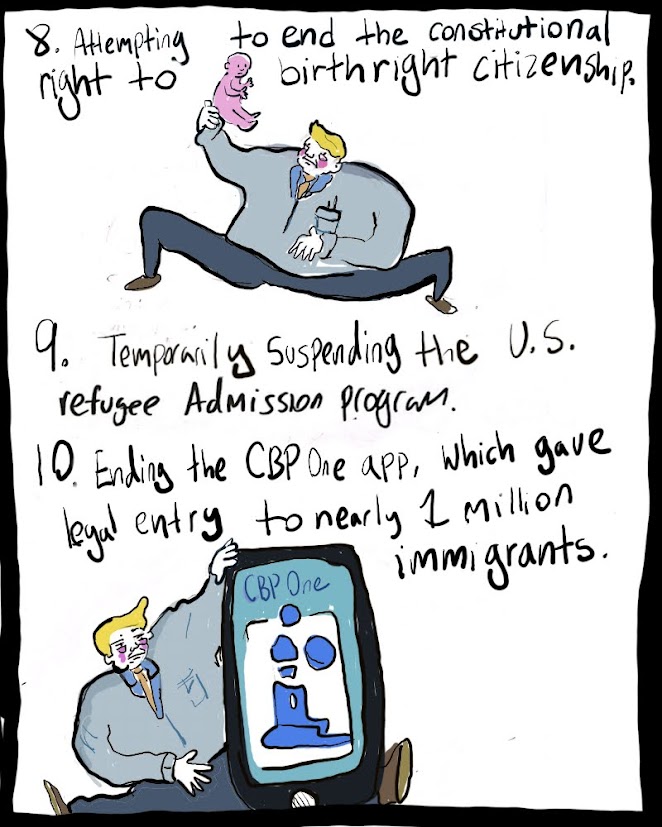 8. Attempting to end the constitutional
right to birthright citizenship.
9. Temporarily suspending the U.S.
refugee Admission program.
10. Ending the CBP One app, which gave
legal entry to nearly 1 million
immigrants.
CBP One